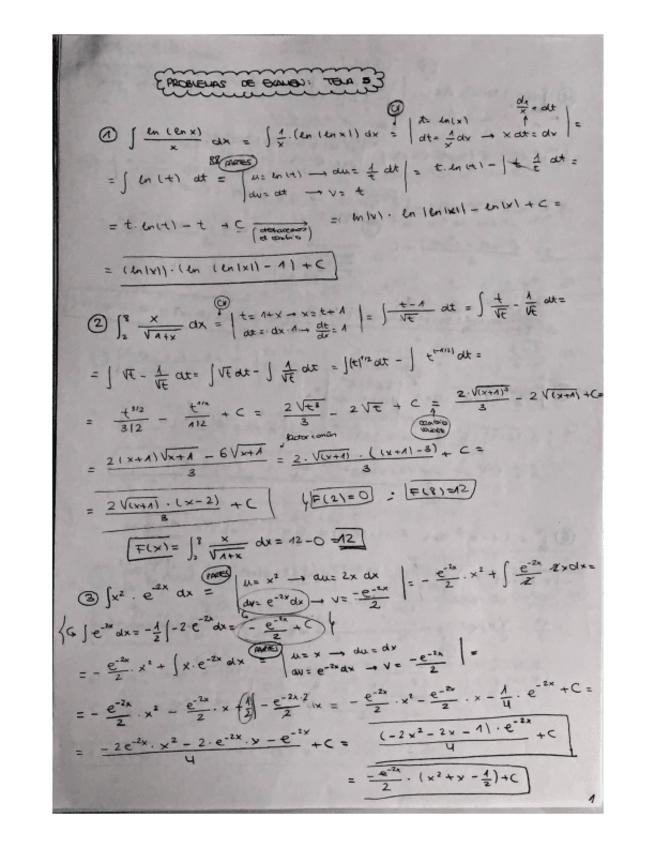 PROBLEMAS DE EXAMEN: TEMA 5
① ∫ ln(ln x)/x dx = ∫ 1/x · (ln(ln(x))) dx = (CV) | t = ln(x) dt = 1/x dx → x dt = dx dx/x = dt | =
= ∫ ln(t) dt = PARTES | u = ln(t) → du = 1/t dt dv = dt → v = t | = t · ln(t) − ∫ t · 1/t dt =
= t · ln(t) − t + C → (deshacemos el cambio) = ln|x| · ln|ln|x|| − ln|x| + C =
= (ln|x|) · (ln (ln|x|) − 1) + C
② ∫₂⁸ x/√(1+x) dx = (CV) | t = 1+x → x = t+1 dt = dx · 1 → dt/dx = 1 | = ∫ (t−1)/√t dt = ∫ t/√t − 1/√t dt =
= ∫ √t − 1/√t dt = ∫ √t dt − ∫ 1/√t dt = ∫ (t)^(1/2) dt − ∫ t^(−1/2) dt =
= t^(3/2)/(3/2) − t^(1/2)/(1/2) + C = 2√t³/3 − 2√t + C = 2·√(x+1)³/3 − 2√(x+1) + C =
factor común
= (2(x+1)√(x+1) − 6√(x+1))/3 = 2·√(x+1) · ((x+1)−3)/3 + C =
= 2√(x+1) · (x−2)/3 + C ↳ F(2)=0 ; F(8)=12
F(x) = ∫₂⁸ x/√(1+x) dx = 12 − 0 = 12
③ ∫ x² · e^(−2x) dx = PARTES | u = x² → du = 2x dx dv = e^(−2x) dx → v = −e^(−2x)/2 | = − e^(−2x)/2 · x² + ∫ e^(−2x)/2 · 2x dx =
↳ ∫ e^(−2x) dx = −1/2 ∫ −2·e^(−2x) dx = − e^(−2x)/2 + C
= − e^(−2x)/2 · x² + ∫ x · e^(−2x) dx = PARTES | u = x → du = dx dv = e^(−2x) dx → v = −e^(−2x)/2 | =
= − e^(−2x)/2 · x² − e^(−2x)/2 · x + 1/2 = − e^(−2x)/2 · x² − e^(−2x)/2 · x − 1/4 · e^(−2x) + C =
= (−2e^(−2x) · x² − 2·e^(−2x) · x − e^(−2x))/4 + C = (−2x² − 2x − 1) · e^(−2x)/4 + C
= −e^(−2x)/2 · (x² + x − 1/2) + C
1